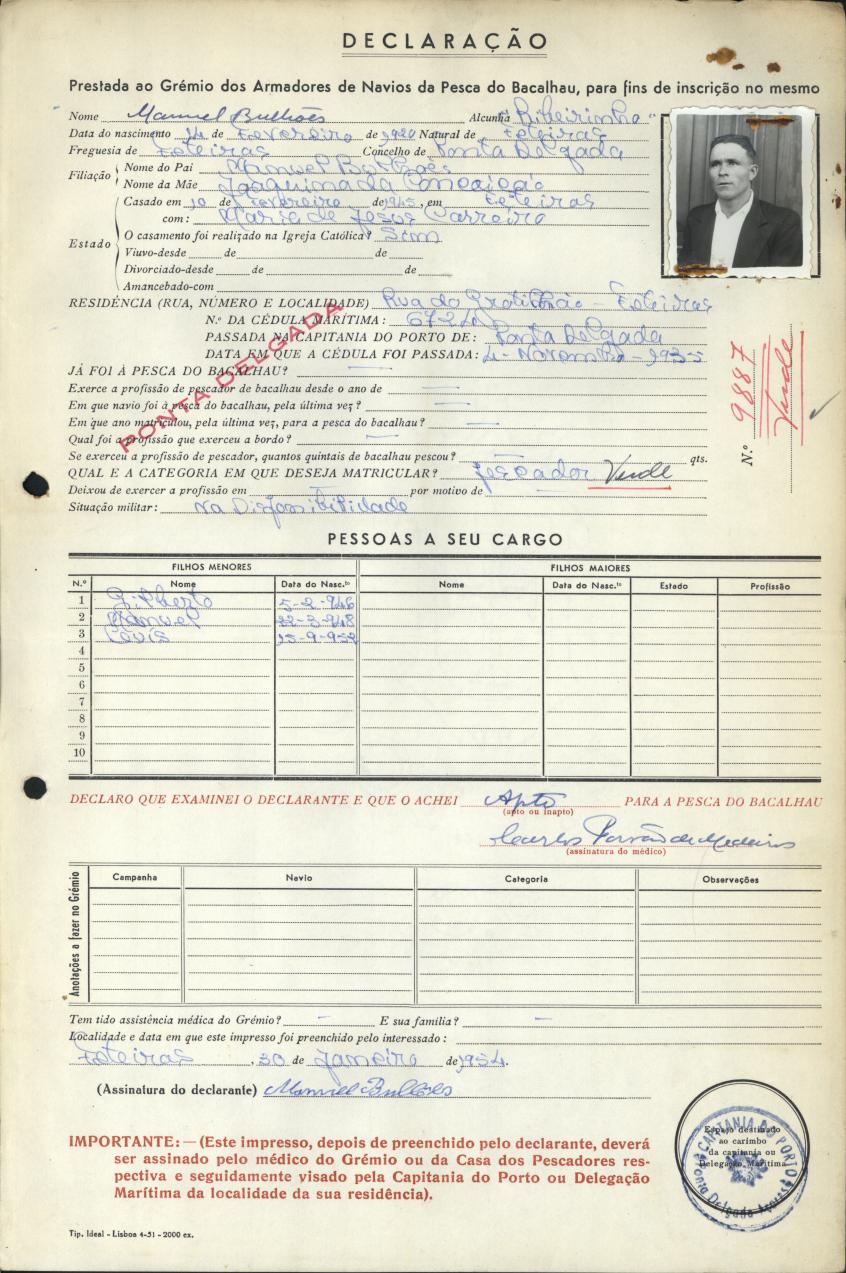 DECLARAÇÃO
Prestada ao Grémio dos Armadores de Navios da Pesca do Bacalhau, para fins de inscrição no mesmo
Nome Manuel Bulhões Alcunha "Ribeirinho"
Data do nascimento 14 de Fevereiro de 1920 Natural de Feteiras
Freguesia de Feteiras Concelho de Ponta Delgada
Filiação Nome do Pai Manuel Bulhões
Nome da Mãe Joaquina da Conceição
Estado Casado em 10 de Fevereiro de 1945, em Feteiras
com: Maria de Jesus Carreiro
O casamento foi realizado na Igreja Católica? Sim
Viuvo-desde de de
Divorciado-desde de de
Amancebado-com
RESIDÊNCIA (RUA, NÚMERO E LOCALIDADE) Rua da - Feteiras
N.º DA CÉDULA MARÍTIMA:
PASSADA NA CAPITANIA DO PORTO DE: Ponta Delgada
DATA EM QUE A CÉDULA FOI PASSADA: 4-Novembro-1935
PONTA DELGADA
N.º 9887
Verde
JÁ FOI À PESCA DO BACALHAU? —
Exerce a profissão de pescador de bacalhau desde o ano de —
Em que navio foi à pesca do bacalhau, pela última vez? —
Em que ano matriculou, pela última vez, para a pesca do bacalhau? —
Qual foi a profissão que exerceu a bordo? —
Se exerceu a profissão de pescador, quantos quintais de bacalhau pescou? — qts.
QUAL E A CATEGORIA EM QUE DESEJA MATRICULAR? Pescador Verde
Deixou de exercer a profissão em — por motivo de —
Situação militar: Na Disponibilidade
PESSOAS A SEU CARGO
FILHOS MENORES FILHOS MAIORES
N.º Nome Data do Nasc.to Nome Data do Nasc.to Estado Profissão
1 Gilberto 5-2-946
2 Manuel 22-3-948
3 Luvís 15-9-952
4
5
6
7
8
9
10
DECLARO QUE EXAMINEI O DECLARANTE E QUE O ACHEI Apto PARA A PESCA DO BACALHAU
(apto ou inapto)
Carlos de Medeiros
(assinatura do médico)
Anotações a fazer no Grémio
Campanha Navio Categoria Observações
Tem tido assistência médica do Grémio? — E sua família? —
Localidade e data em que este impresso foi preenchido pelo interessado:
Feteiras, 30 de Janeiro de 1954.
(Assinatura do declarante) Manuel Bulhões
IMPORTANTE: — (Este impresso, depois de preenchido pelo declarante, deverá
ser assinado pelo médico do Grémio ou da Casa dos Pescadores res-
pectiva e seguidamente visado pela Capitania do Porto ou Delegação
Marítima da localidade da sua residência).
Espaço destinado
ao carimbo
da capitania ou
Delegação Marítima
CAPITANIA DO PORTO
Ponta Delgada
Tip. Ideal - Lisboa 4-51 - 2000 ex.